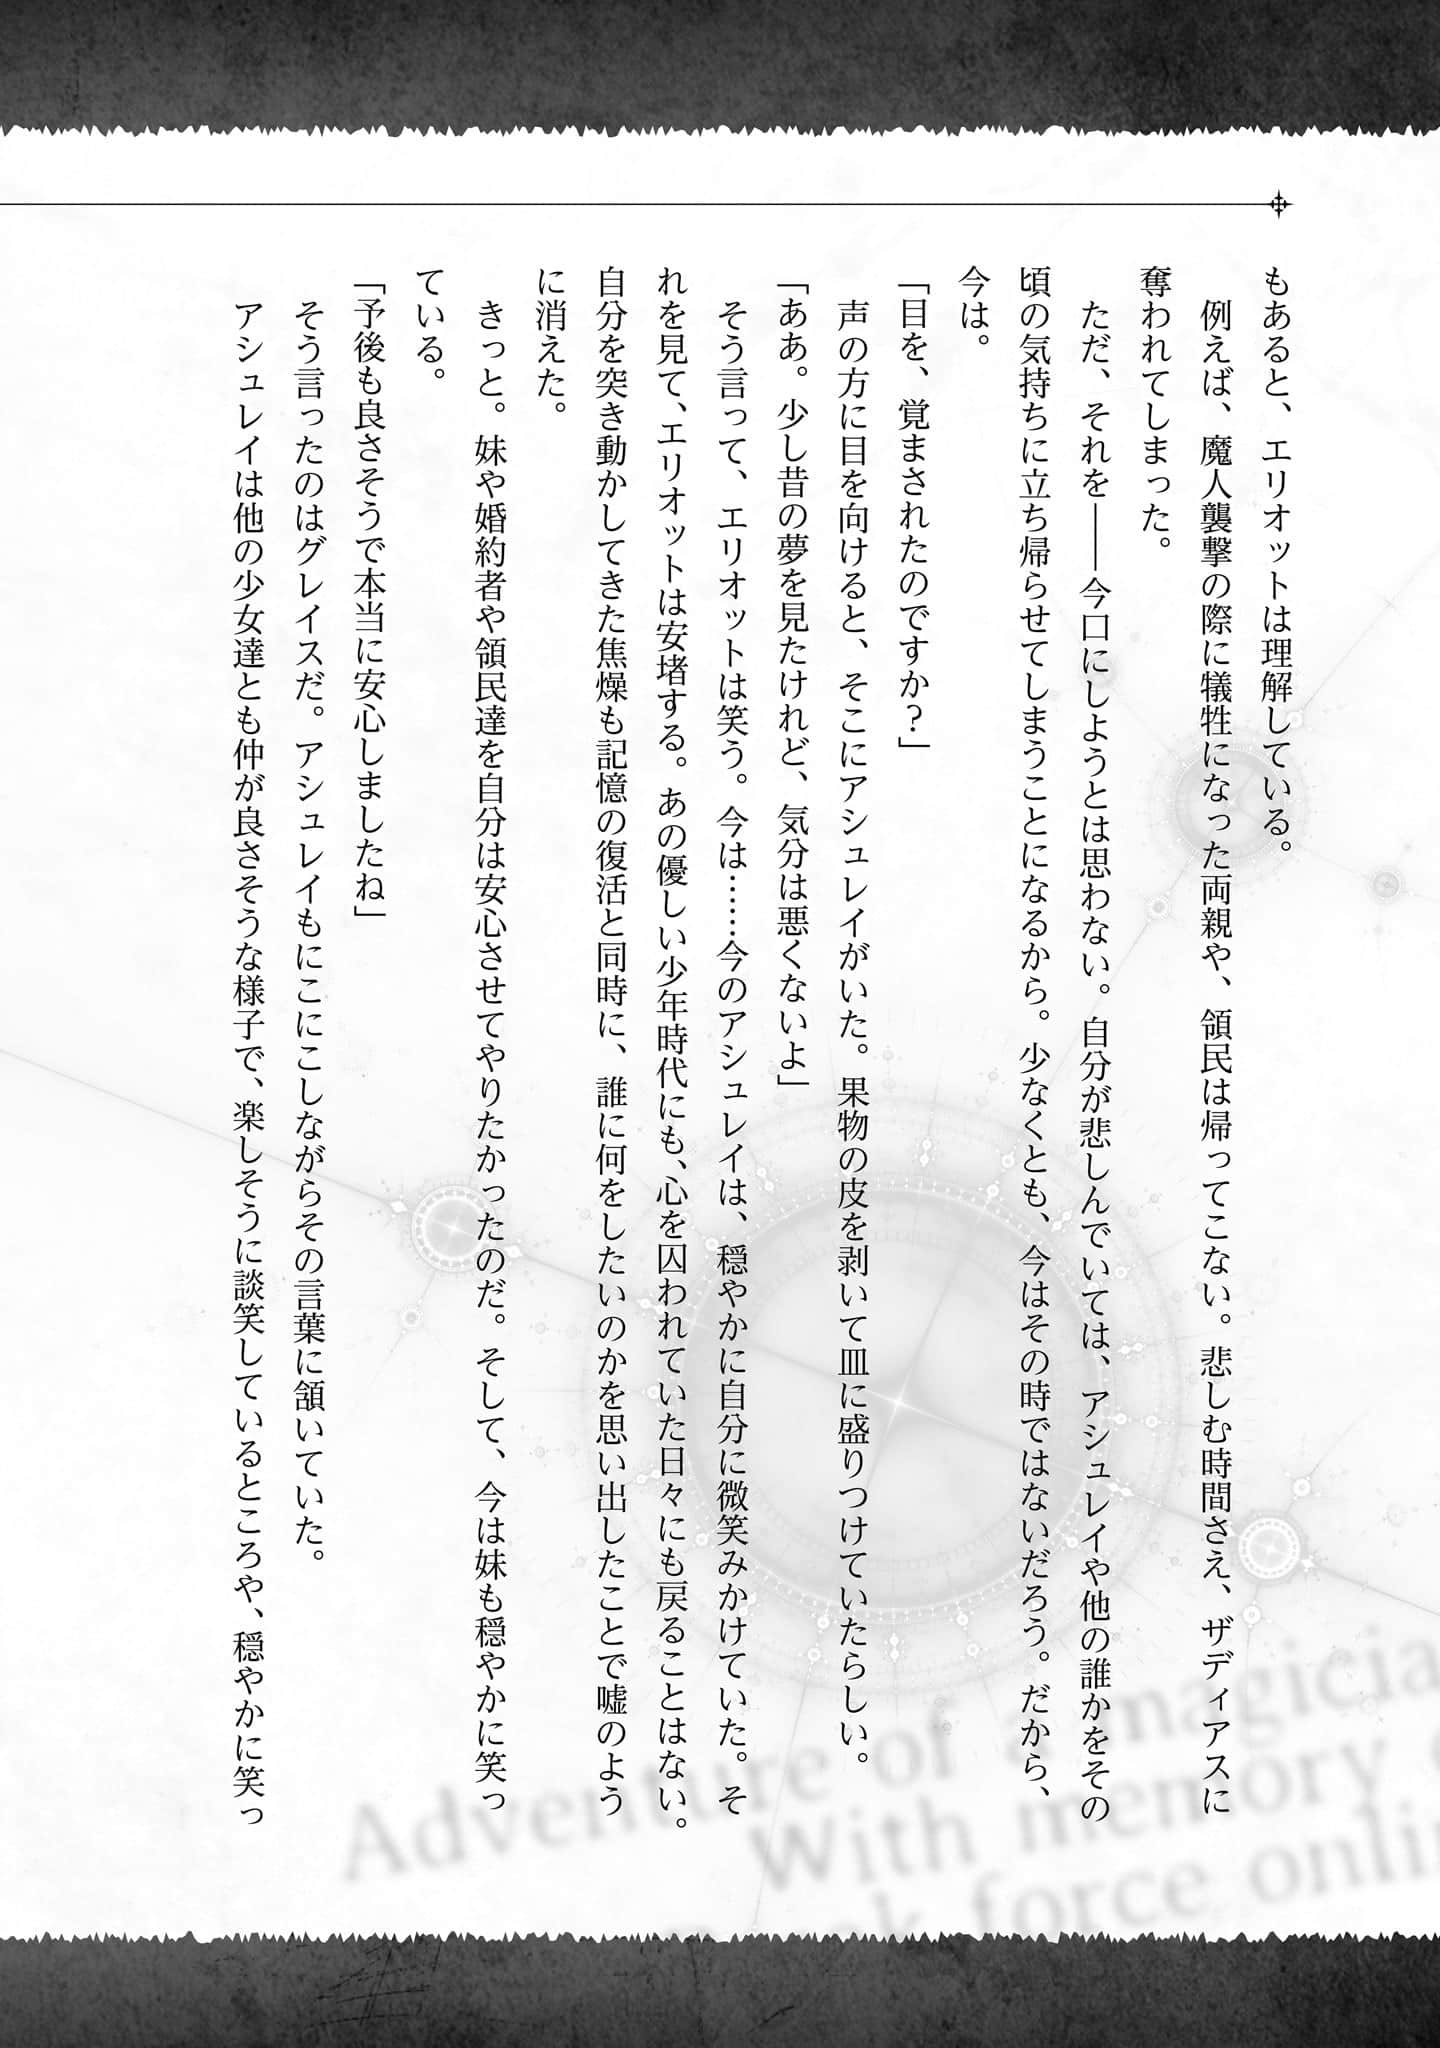 もあると、エリオットは理解している。
　例えば、魔人襲撃の際に犠牲になった両親や、領民は帰ってこない。悲しむ時間さえ、ザディアスに
奪われてしまった。
　ただ、それを――今口にしようとは思わない。自分が悲しんでいては、アシュレイや他の誰かをその
頃の気持ちに立ち帰らせてしまうことになるから。少なくとも、今はその時ではないだろう。だから、
今は。
「目を、覚まされたのですか？」
　声の方に目を向けると、そこにアシュレイがいた。果物の皮を剥いて皿に盛りつけていたらしい。
「ああ。少し昔の夢を見たけれど、気分は悪くないよ」
　そう言って、エリオットは笑う。今は……今のアシュレイは、穏やかに自分に微笑みかけていた。そ
れを見て、エリオットは安堵する。あの優しい少年時代にも、心を囚われていた日々にも戻ることはない。
自分を突き動かしてきた焦燥も記憶の復活と同時に、誰に何をしたいのかを思い出したことで嘘のよう
に消えた。
　きっと。妹や婚約者や領民達を自分は安心させてやりたかったのだ。そして、今は妹も穏やかに笑っ
ている。
「予後も良さそうで本当に安心しましたね」
　そう言ったのはグレイスだ。アシュレイもにこにこしながらその言葉に頷いていた。
　アシュレイは他の少女達とも仲が良さそうな様子で、楽しそうに談笑しているところや、穏やかに笑っ
Adventure of a magicia
With memory
force onlin